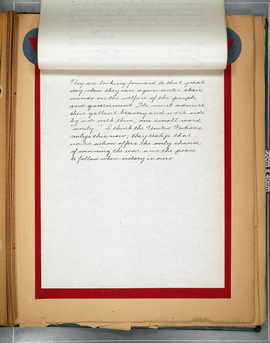 They are looking forward to that great
day when they can again center their
minds on the welfare of the people
and government. We must admire
their gallant bravery and work side
by side with them, one small word
"unity." I think the United Nations
realize this now; they realize that
united action offers the only chance
of winning the war and the peace
to follow when victory is ours.